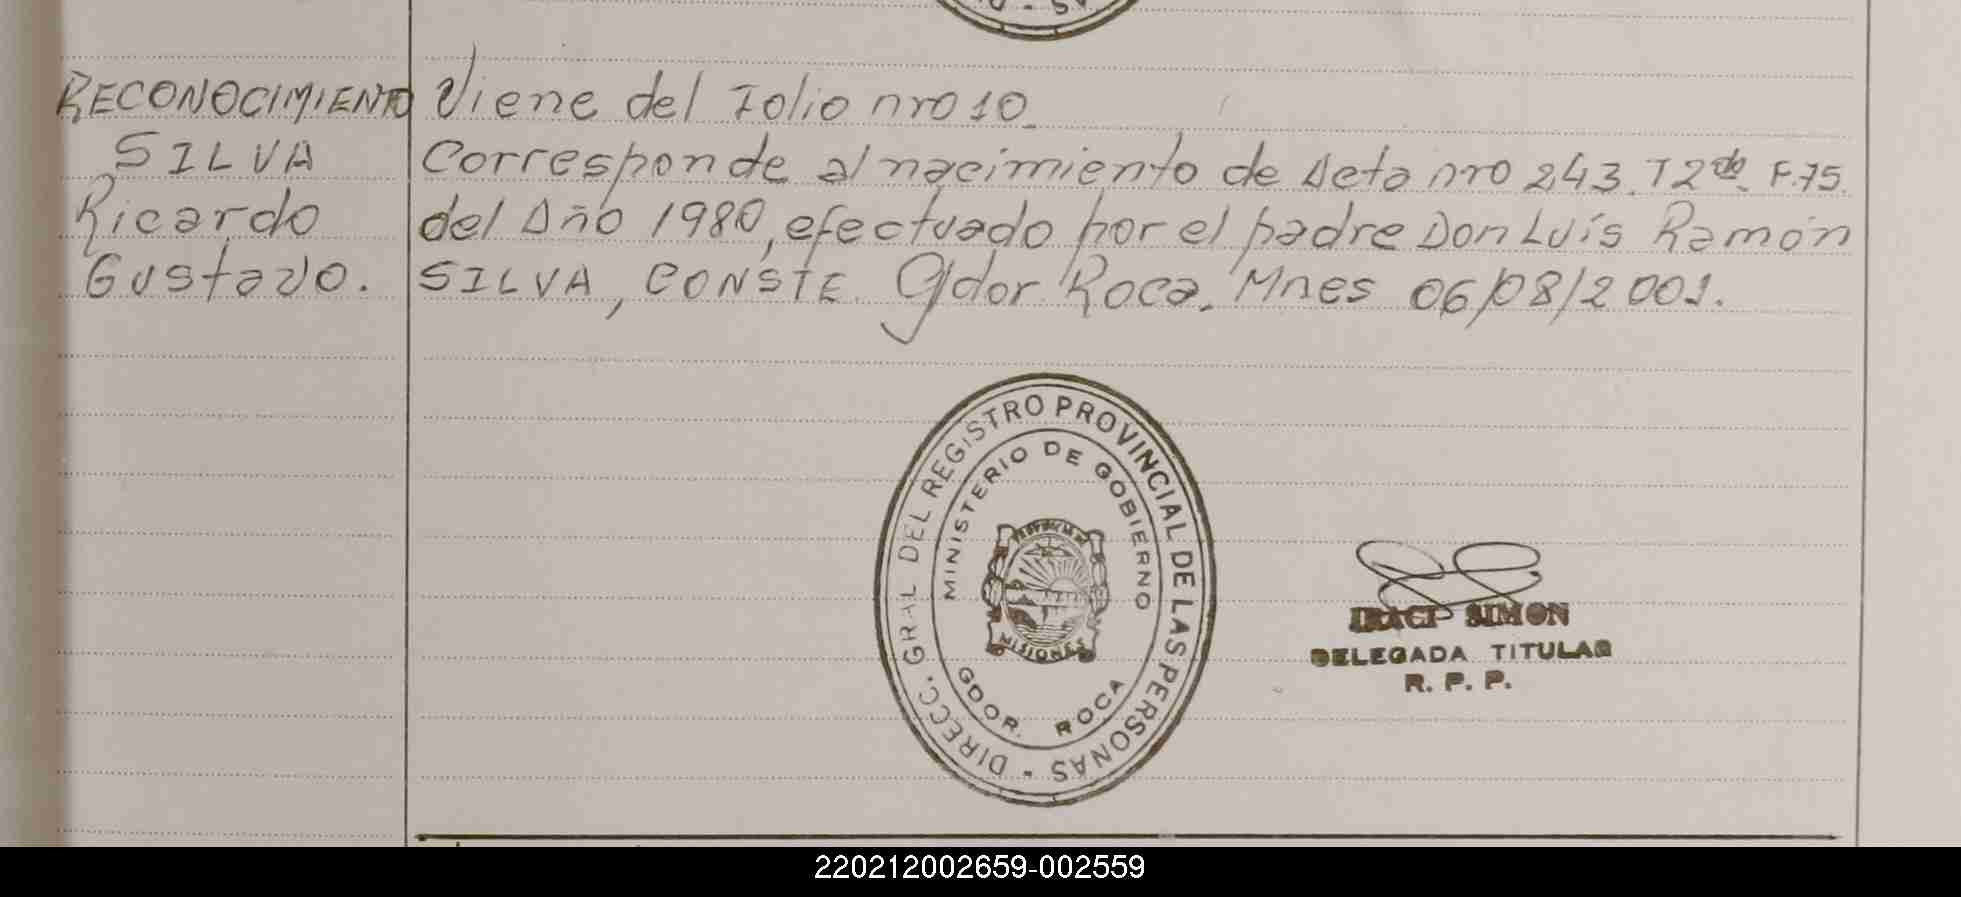 RECONOCIMIENTO
SILVA
Ricardo
Gustavo.
Viene del Folio nro 10.
Corresponde al nacimiento de Acta nro 243. T2do. F.75.
del Año 1980, efectuado por el padre Don Luís Ramón
SILVA, CONSTE. Gdor. Roca. Mnes 06/08/2001.
DIRECC. GRAL DEL REGISTRO PROVINCIAL DE LAS PERSONAS -
MINISTERIO DE GOBIERNO
PROVINCIA DE
MISIONES
GDOR. ROCA
IRACI SIMON
DELEGADA TITULAR
R. P. P.
220212002659-002559